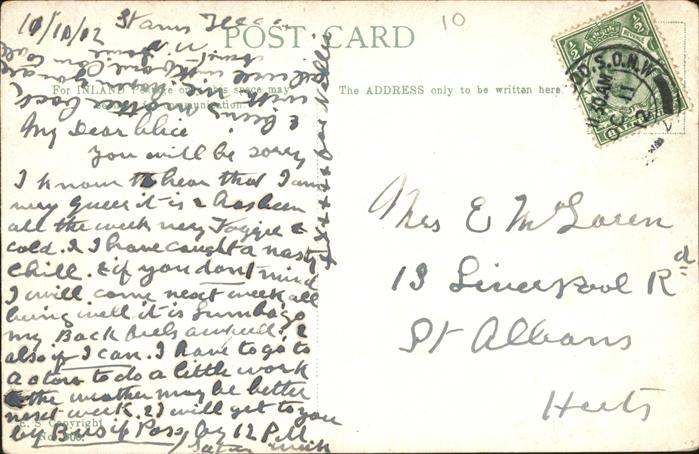 10/10/12 Stans
N.W
POST CARD
10
For INLAND Postage only this space may
The ADDRESS only to be written here.
communication
My Dear Alice
you will be sorry
I know to hear that I am
very queer it is & has been
all the week very Foggie &
cold. & I have caught a nasty
Chill. & if you dont mind
I will come next week all
being well it is Lumbago
my Back feels awful! &
also if I can. I have to go to
a store to do a little work
the weather may be better
next week. & I will get to you
by Bus if Poss by 12 P.M
Satur
E. S Copyright
No
from Nell
x x x x x
S.O. N.W
11
½
½
Mrs E McLaren
13 Liverpool Rd
St Albans
Herts